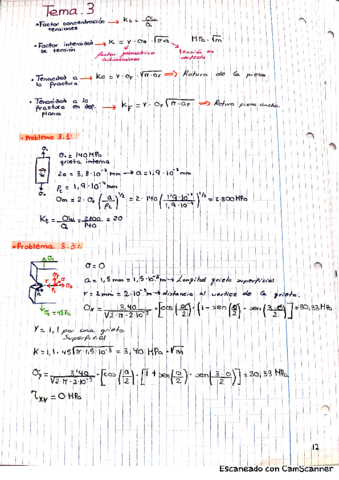 Tema. 3
• Factor concentración → Kt = σm/σo
tensiones
• Factor intensidad → K = Y · σo · √π·a MPa·√m
de tensión
factor geométrico adimensional
tensión en defecto
• Tenacidad a → Kc = Y · σo √π·ac ⟹ Rotura de la pieza
la fractura
• Tenacidad a la
fractura en def.
planas
• Problema 3.1:
σo = 140 MPa
grieta interna
2a = 3,8·10⁻² mm → a = 1,9·10⁻² mm
ρt = 1,9·10⁻⁴ mm
σm = 2·σo (a/ρt)^1/2 = 2·140 (1,9·10⁻²/1,9·10⁻⁴)^1/2 = 2800 MPa
Kt = σm/σo = 2800/140 = 20
• Problema 3.3:
θ = 0
a = 1,5 mm = 1,5·10⁻³ m → Longitud grieta superficial
r = 2 mm = 2·10⁻³ m → distancia al vertice de la grieta.
σx = 3,40/√2·π·2·10⁻³ · [cos(0/2) · (1 - sen(0/2) · sen(3·0/2))] = 30,33 MPa
σo = 45 MPa
Y = 1,1 por una grieta
superficial
K = 1,1·45 √π·1,5·10⁻³ = 3,40 MPa·√m
σy = 3,40/√2·π·2·10⁻³ · [cos(0/2) · [1 + sen(0/2) · sen(3·0/2)]] = 30,33 MPa
τxy = 0 MPa
12
Escaneado con CamScanner